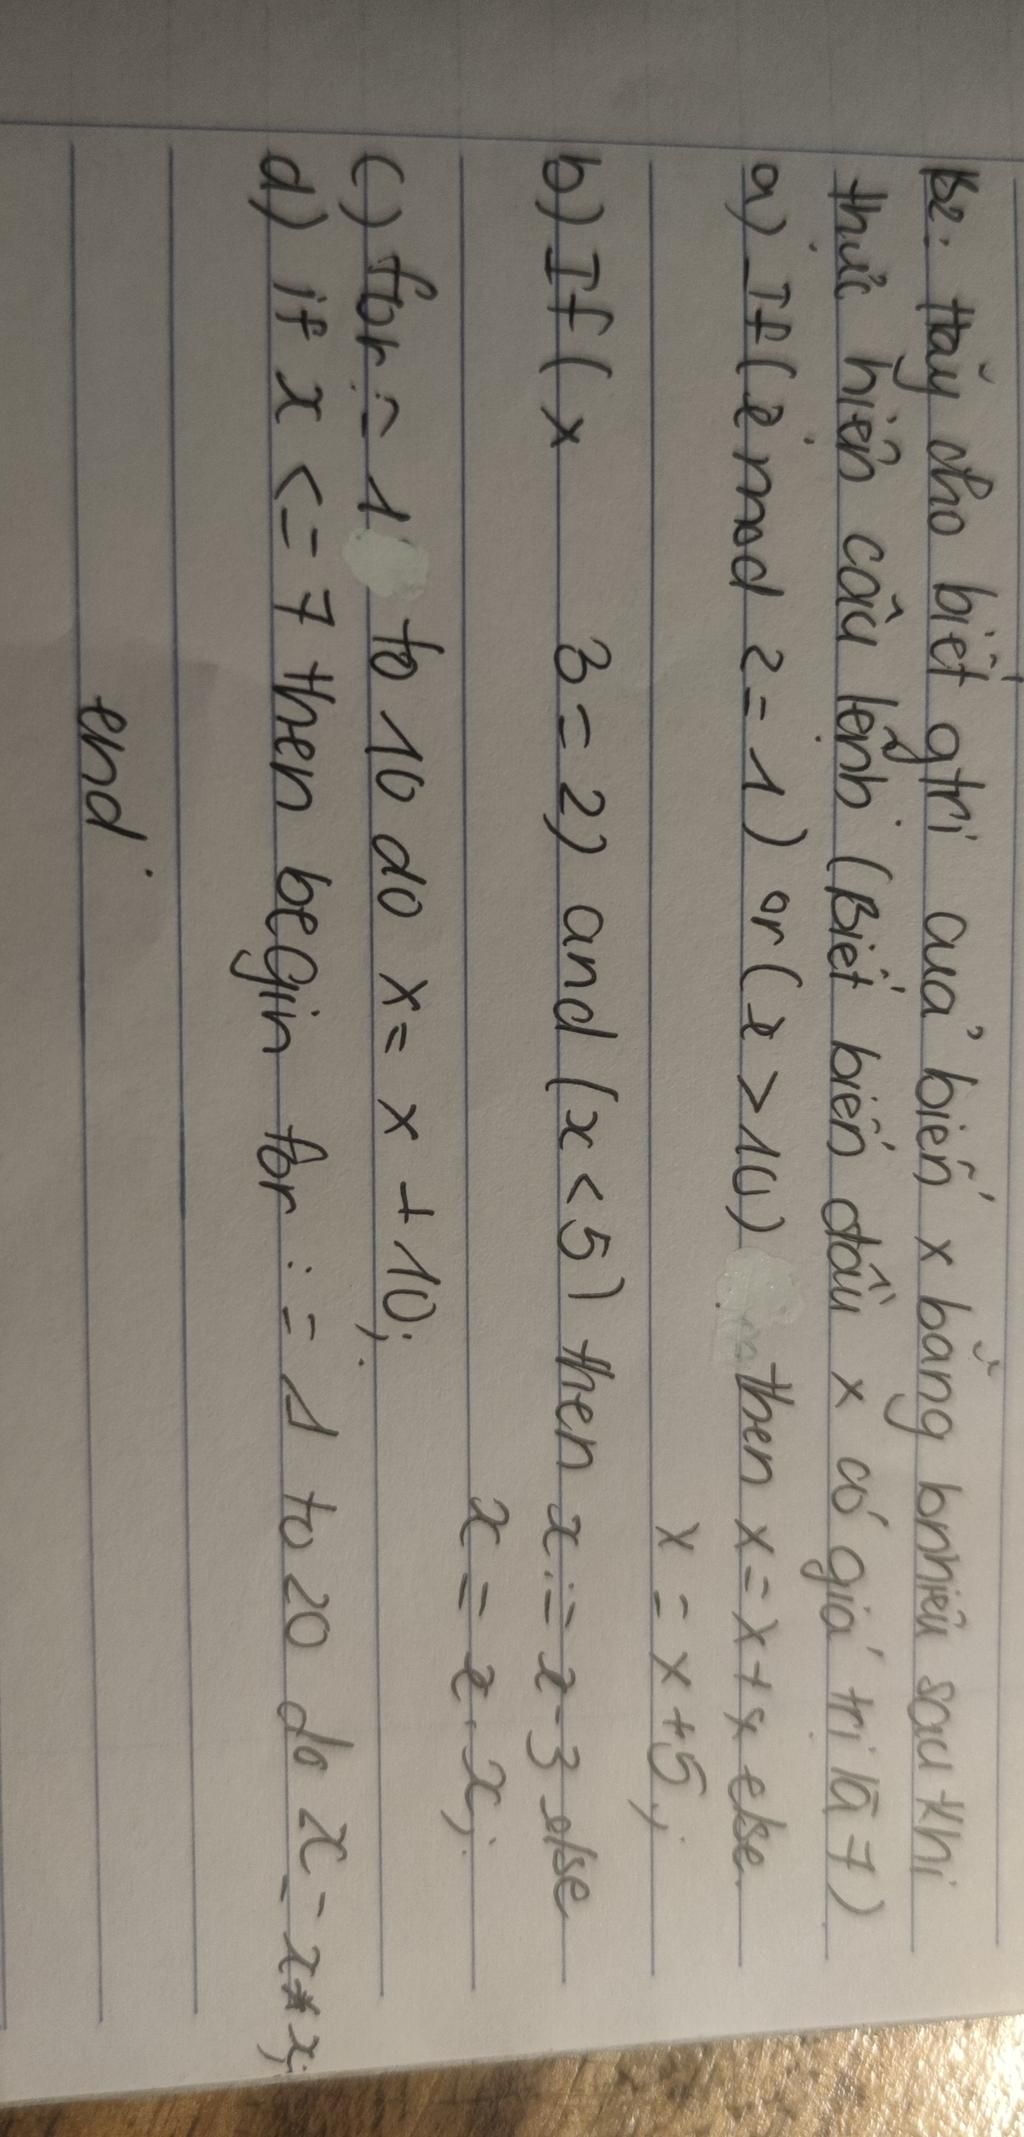 B2: Hãy cho biết gtri của biến x bằng bnhiêu sau khi
thực hiện câu lệnh (Biết biến đầu x có giá trị là 7)
a) If (x mod 2 = 1) or (x > 10) then x = x + x else
x = x + 5;
b) If (x 3 = 2) and (x < 5) then x := x - 3 else
x = x . x;
c) for := 1 to 10 do x = x + 10;
d) if x <= 7 then begin for := 1 to 20 do x = x * x;
end